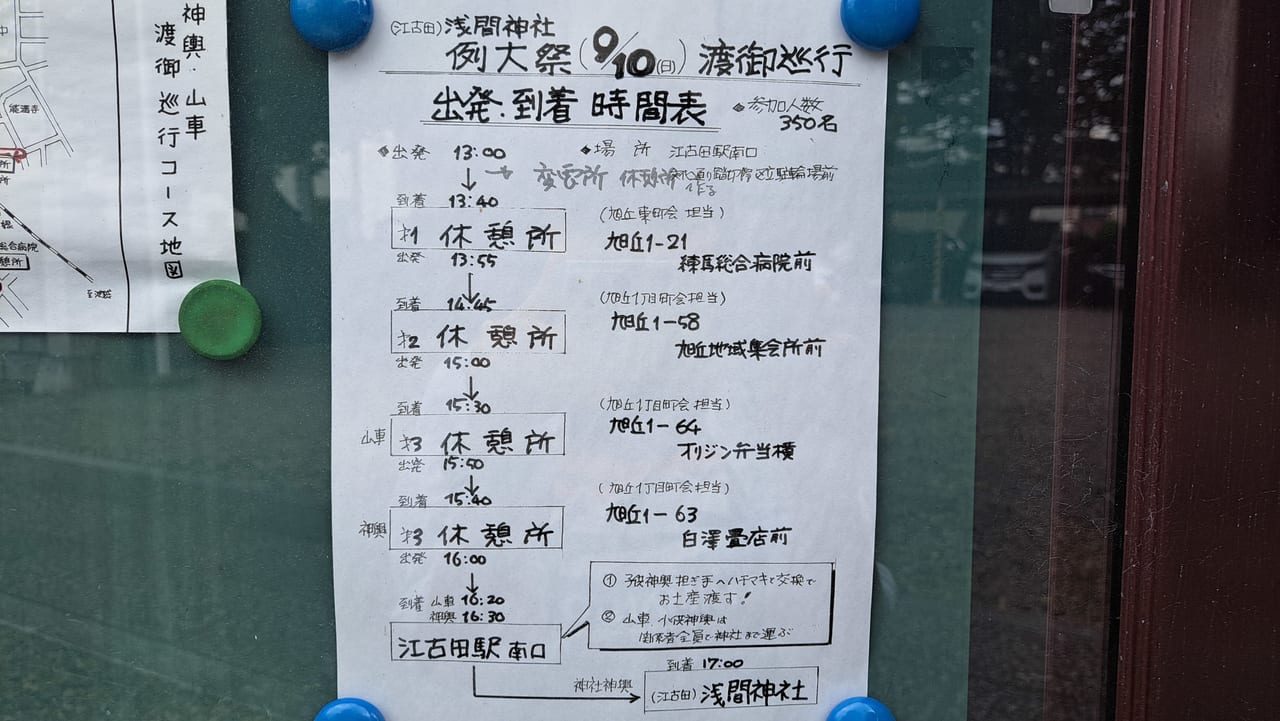 神輿・山車
渡御巡行コース地図
能満寺
総合病院
憩所
至池袋
(江古田)浅間神社
例大祭(9/10(日))渡御巡行
出発・到着 時間表
◆参加人数
350名
◆出発 13:00
◆場 所 江古田駅南口
変電所 休憩所
区立駐輪場前
作る
到着 13:40
(旭丘東町会担当)
才1 休憩所
旭丘1-21
出発 13:55
練馬総合病院前
到着 14:45
(旭丘1丁目町会担当)
才2 休憩所
旭丘1-58
旭丘地域集会所前
出発 15:00
到着 15:30
(旭丘1丁目町会担当)
山車 才3 休憩所
旭丘1-64
オリジン弁当横
出発 15:50
到着 15:40
(旭丘1丁目町会担当)
神輿 才3 休憩所
旭丘1-63
白澤畳店前
出発 16:00
① 子供神輿担ぎ手へハチマキと交換で
お土産渡す!
② 山車、小供神輿は
関係者全員で神社まで運ぶ
到着 山車 16:20
神輿 16:30
江古田駅南口
到着 17:00
神社神輿
(江古田)浅間神社